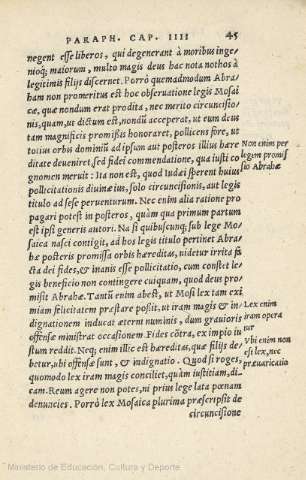 PARAPH. CAP. IIII 45
negent esse liberos, qui degenerant à moribus inge-
nioq́; maiorum, multo magis deus hac nota nothos à
legitimis filijs discernet. Porrò quemadmodum Abra
ham non promeritus est hoc obseruatione legis Mosai
cæ, quæ nondum erat prodita, nec merito circuncisio-
nis, quam, ut dictum est, nondū acceperat, ut eum deus
tam magnificis promißis honoraret, pollicens fore, ut
totius orbis dominiū ad ipsum aut posteros illius hære
ditate deueniret, sed fidei commendatione, qua iusti co
gnomen meruit: Ita non est, quod Iudæi sperent huius
pollicitationis diuinæ ius, solo circuncisionis, aut legis
titulo ad sese peruenturum. Nec enim alia ratione pro
pagari potest in posteros, quàm qua primum partum
est ipsi generis autori. Na si quibuscunq; sub lege Mo
saica nasci contigit, ad hos legis titulo pertinet Abra-
hæ posteris promissa orbis hæreditas, uidetur irrita fa
cta dei fides, & inanis esse pollicitatio, cum constet le
gis beneficio non contingere cuiquam, quod deus pro-
misit Abrahæ. Tantū enim abest, ut Mosi lex tam exi
miam felicitatem præstare poßit, ut iram magis & in-
dignationem inducat æterni numinis, dum grauioris
offensæ ministrat occasionem. Fides cōtra, ex impio iu
stum reddit. Neq; enim illic est hæreditas, quæ filijs de-
betur, ubi offensæ sunt, & indignatio. Quod si roges,
quomodo lex iram magis conciliet, quàm iustitiam, di-
cam. Reum agere non potes, ni prius lege lata pœnam
denuncies. Porrò lex Mosaica plurima præscripsis de
circuncisione
Non enim per
legem promis
sio Abrahæ
Lex enim
iram opera
tur
Vbi enim non
est lex, nec
præuaricatio
Ministerio de Educación, Cultura y Deporte